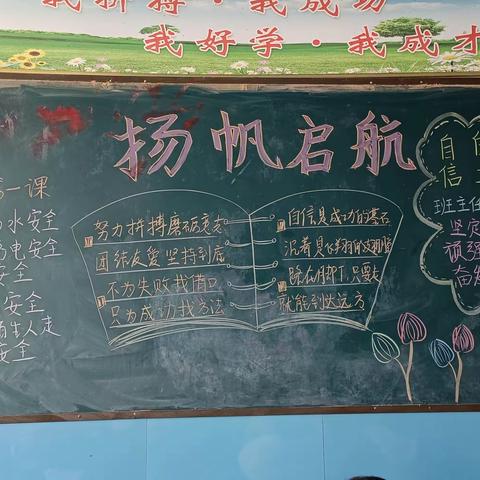 我拼搏·我成功
我好学·我成才
扬帆启航
一课
水安全
电安全
安全
安全
生人走
安全
努力拼搏磨砺意志
团结友爱坚持到底
不为失败找借口
只为成功找方法
自信是成功的基石
沉着是飞翔的翅膀
脚下,只要
就能到达远方
自
信
班主任
坚定
顽强
奋发